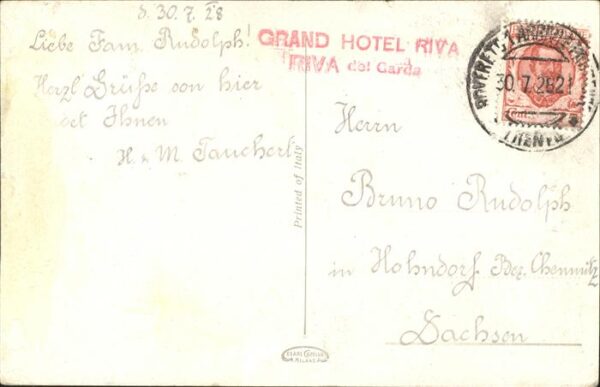 d. 30.7.28
Liebe Fam. Rudolph!
Herzl. Grüße von hier
Ihnen
H. u. M. Taucherl
GRAND HOTEL RIVA
RIVA del Garda
30.7.28 21
TRENTO
Printed of Italy
Herrn
Bruno Rudolph
in Hohndorf Bez. Chemnitz
Sachsen
MILANO